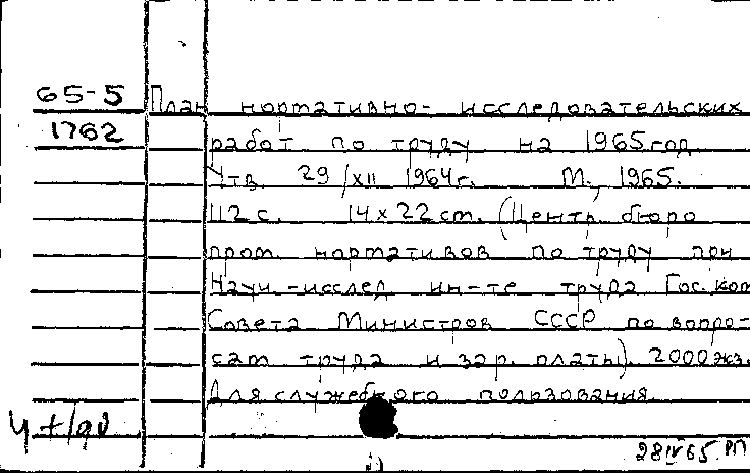 65-5 План нормативно- исследовательских
1762 работ по труду на 1965 год
Утв. 29/XII 1964г. М., 1965.
112 с. 14 x 22 см. (Центр. бюро
пром. нормативов по труду при
Научн.-исслед. ин-те труда Гос. ком.
Совета Министров СССР по вопро-
сам труда и зар. платы). 2000 экз.
Для служебного пользования.
28 IV 65. РП